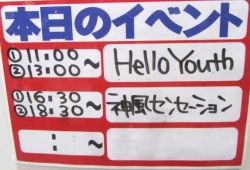 本日のイベント
①11:00
②13:00～
Hello Youth
①16:30
②18:30～
神風センセーション
:～